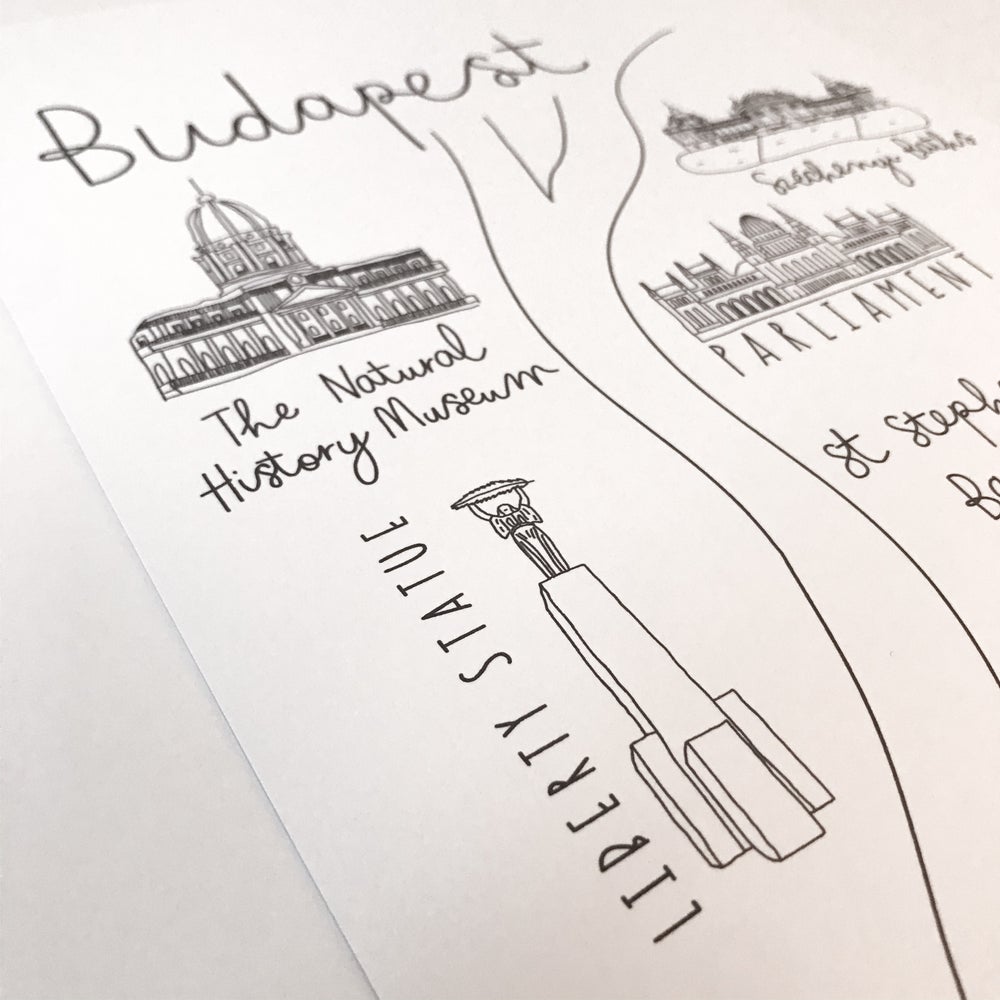 Budapest
Széchenyi Baths
PARLIAMENT
The Natural
History Museum
St Steph
LIBERTY STATUE